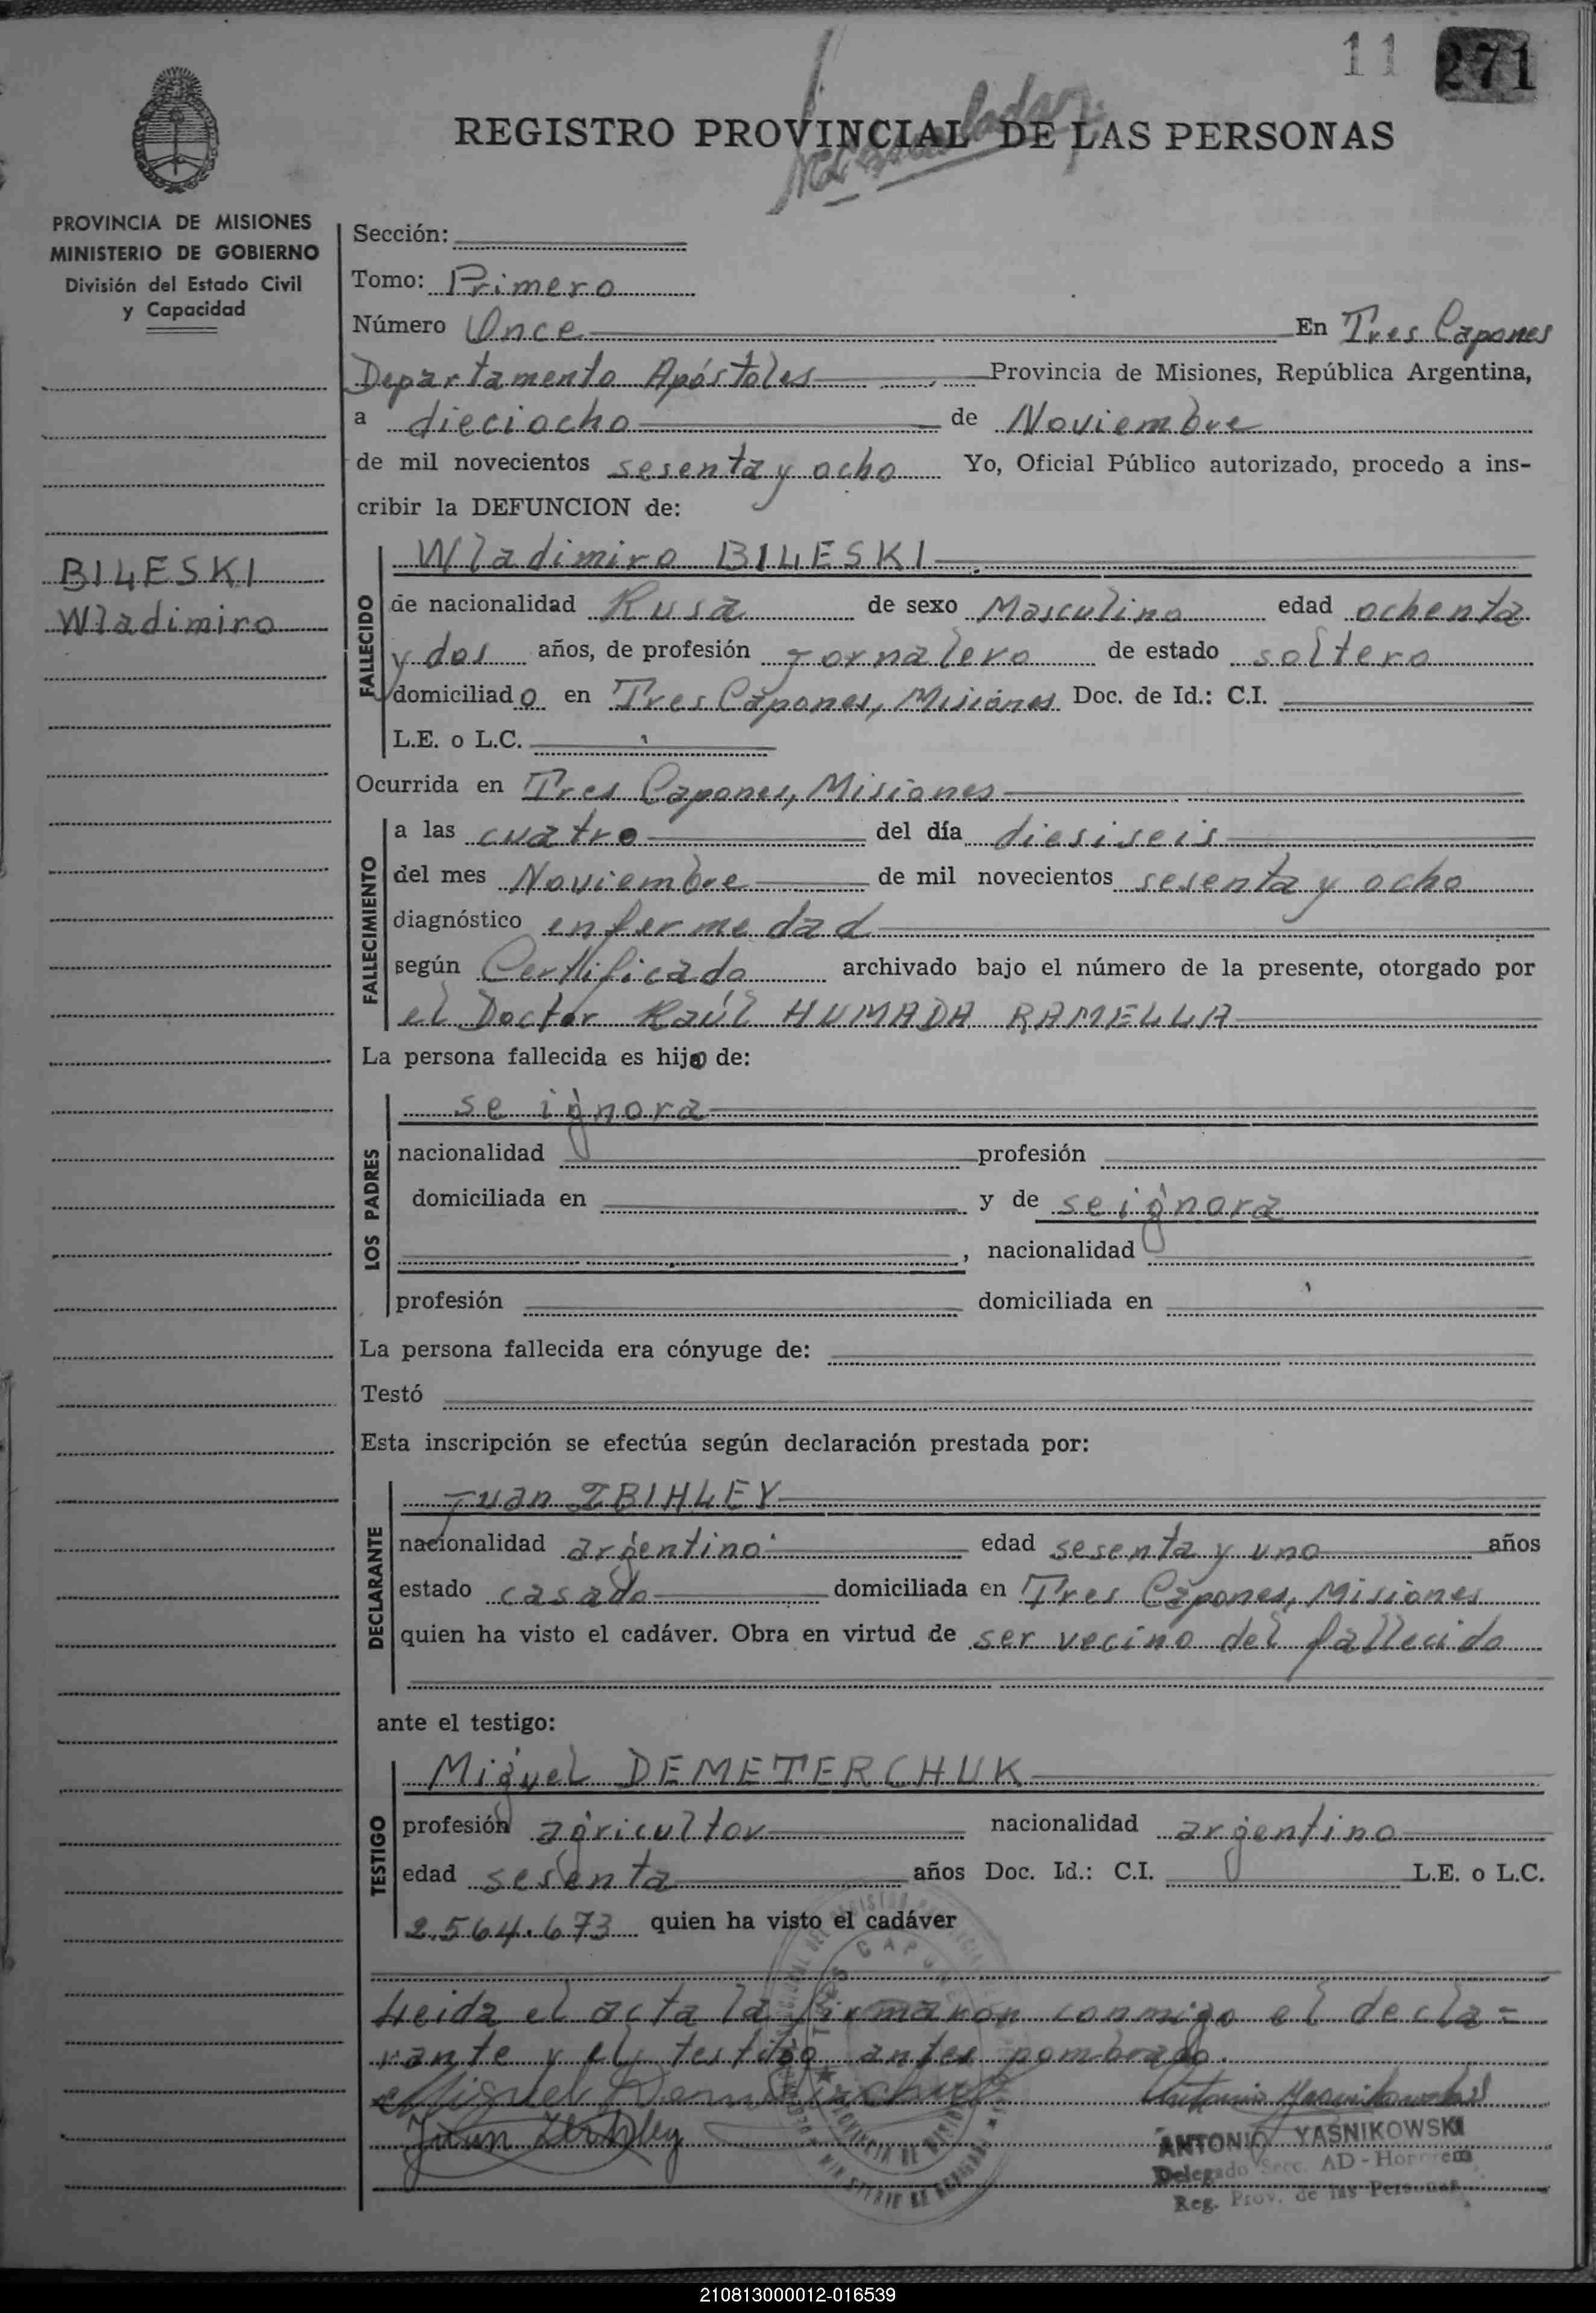 11 271
REGISTRO PROVINCIAL DE LAS PERSONAS
PROVINCIA DE MISIONES
MINISTERIO DE GOBIERNO
División del Estado Civil
y Capacidad
BILESKI
Wladimiro
Sección:
Tomo: Primero
Número Once En Tres Capones
Departamento Apóstoles Provincia de Misiones, República Argentina,
a dieciocho de Noviembre
de mil novecientos sesenta y ocho Yo, Oficial Público autorizado, procedo a ins-
cribir la DEFUNCION de:
FALLECIDO
Wladimiro BILESKI
de nacionalidad Rusa de sexo Masculino edad ochenta
y dos años, de profesión Jornalero de estado soltero
domiciliado en Tres Capones, Misiones Doc. de Id.: C.I.
L.E. o L.C.
Ocurrida en Tres Capones, Misiones
FALLECIMIENTO
a las cuatro del día diesiseis
del mes Noviembre de mil novecientos sesenta y ocho
diagnóstico enfermedad
según Certificado archivado bajo el número de la presente, otorgado por
el Doctor Raúl HUMADA RAMELLA
La persona fallecida es hijo de:
LOS PADRES
se ignora
nacionalidad profesión
domiciliada en y de se ignora
, nacionalidad
profesión domiciliada en
La persona fallecida era cónyuge de:
Testó
Esta inscripción se efectúa según declaración prestada por:
DECLARANTE
Juan ZBIHLEY
nacionalidad argentino edad sesenta y uno años
estado casado domiciliada en Tres Capones, Misiones
quien ha visto el cadáver. Obra en virtud de ser vecino del fallecido
ante el testigo:
TESTIGO
Miguel DEMETERCHUK
profesión agricultor nacionalidad argentino
edad sesenta años Doc. Id.: C.I. L.E. o L.C.
2.564.673 quien ha visto el cadáver
Leida el acta la firmaron conmigo el decla=
rante y el testigo antes nombrado.
Miguel Demeterchuk Antonio Yasnikowski
Juan Zbihley
ANTONIO YASNIKOWSKI
Delegado Secc. AD-Honorem
Reg. Prov. de las Personas
210813000012-016539